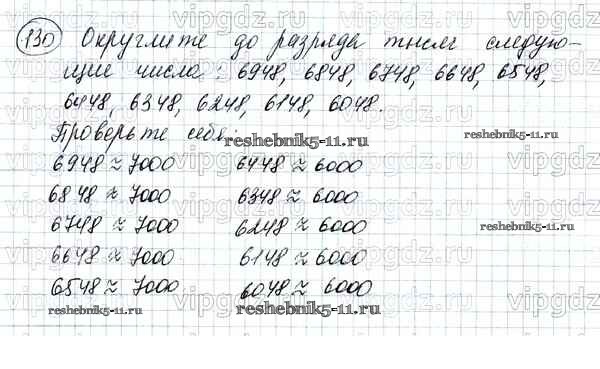 130 Округлите до разряда тысяч следую-
щие числа: 6948, 6848, 6748, 6648, 6548,
6448, 6348, 6248, 6148, 6048.
Проверьте себя:
reshebnik5-11.ru
reshebnik5-11.ru
6948 ≈ 7000 6448 ≈ 6000
6848 ≈ 7000 6348 ≈ 6000
6748 ≈ 7000 6248 ≈ 6000
reshebnik5-11.ru
6648 ≈ 7000 6148 ≈ 6000
6548 ≈ 7000 6048 ≈ 6000
reshebnik5-11.ru
reshebnik5-11.ru